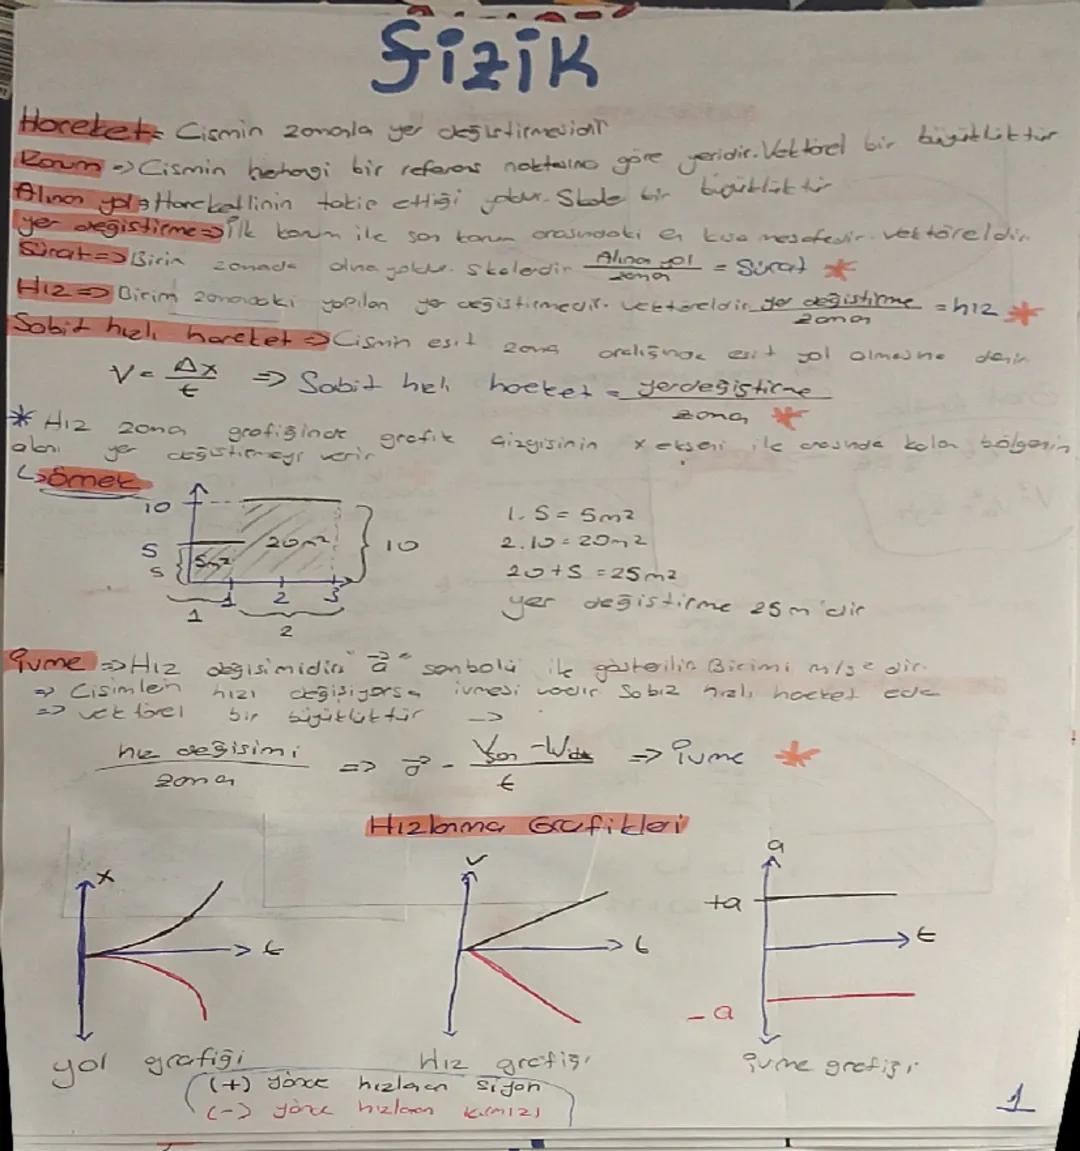 fizik
Hareket= Cismin zamanla yer değiştirmesidir
Konum => Cismin herhangi bir referans noktasına göre yeridir. Vektörel bir büyüklüktür
Alınan yol => Hareketlinin takip ettiği yoldur. Skaler bir büyüklüktür
yer değiştirme => İlk konum ile son konum arasındaki en kısa mesafedir. vektöreldir.
Sürat => Birim zamanda alınan yoldur. skalerdir Alınan yol / zaman = Sürat *
Hız => Birim zamandaki yapılan yer değiştirmedir. vektöreldir yer değiştirme / zaman = hız *
Sabit hızlı hareket => Cismin eşit zaman aralığında eşit yol almasına denir
V = Δx / t => Sabit hızlı hareket = yerdeğiştirme / zaman *
* Hız zaman grafiğinde grafik çizgisinin x ekseni ile arasında kalan bölgenin
alanı yer değiştirmeyi verir
↳ örnek
10
5
5
5m²
20m²
10
1 2 3
1
2
1. 5 = 5m²
2. 10 = 20m²
20+5 = 25m²
yer değiştirme 25m'dir
ivme => Hız değişimidir "a" sembolü ile gösterilir Birimi m/s² dir.
=> Cisimlerin hızı değişiyorsa ivmesi vardır Sabit hızlı hareket ede
=> vektörel bir büyüklüktür
hız değişimi / zaman => a = Vson - Vilk / t => ivme *
Hızlanma Grafikleri
x
t
v
t
a
+a
t
-a
yol grafiği
Hız grafiği
ivme grafiği
(+) yönde hızlanan siyah
(-) yönde hızlanan kırmızı
1